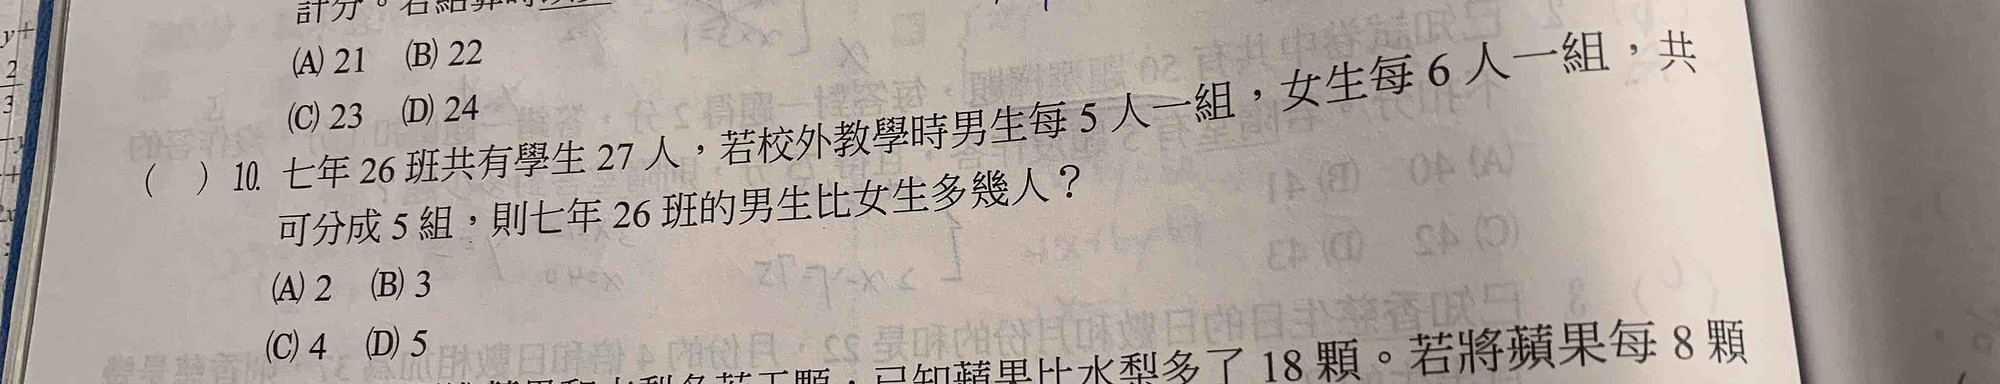 (A) 21 (B) 22
(C) 23 (D) 24
( ) 10. 七年 26 班共有學生 27 人，若校外教學時男生每 5 人一組，女生每 6 人一組，共
可分成 5 組，則七年 26 班的男生比女生多幾人？
(A) 2 (B) 3
(C) 4 (D) 5
已知蘋果比水梨多了 18 顆。若將蘋果每 8 顆